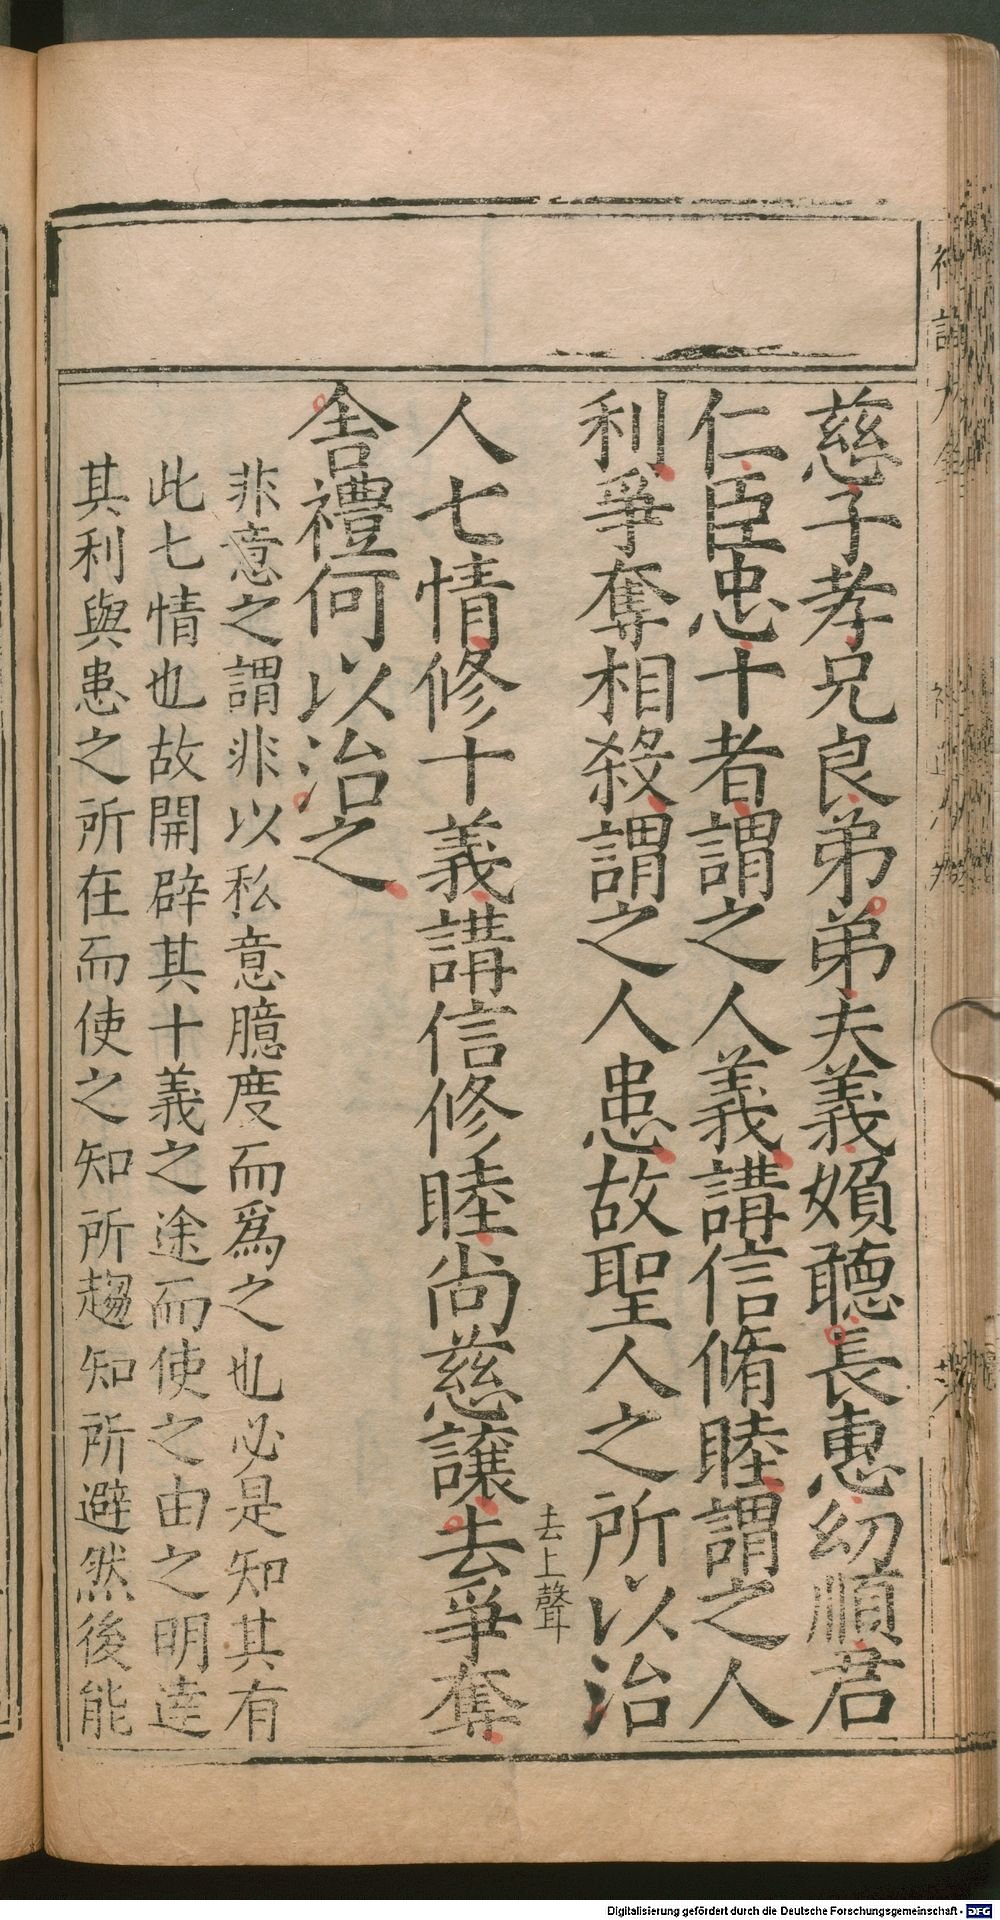 慈子孝兄良弟弟夫義婦聽長惠幼順君
仁臣忠十者謂之人義講信脩睦謂之人
利爭奪相殺謂之人患故聖人之所以治
去上聲
人七情修十義講信修睦尚慈讓去爭奪
舍禮何以治之
非意之謂非以私意臆度而爲之也必是知其有
此七情也故開辟其十義之途而使之由之明逹
其利與患之所在而使之知所趨知所避然後能
Digitalisierung gefördert durch die Deutsche Forschungsgemeinschaft - DFG